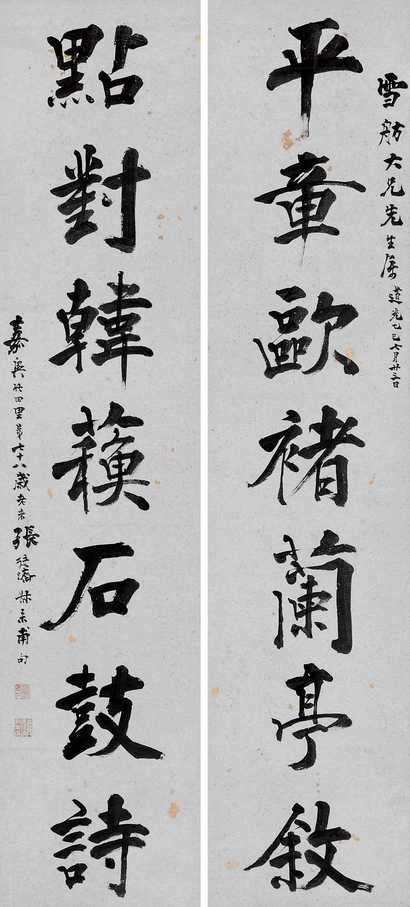 雪舫大兄先生屬
道光乙巳七月廿三日
平章歐褚蘭亭敘
點對韓蘓石鼓詩
嘉興竹田里弟七十八歲老張廷濟叔未甫